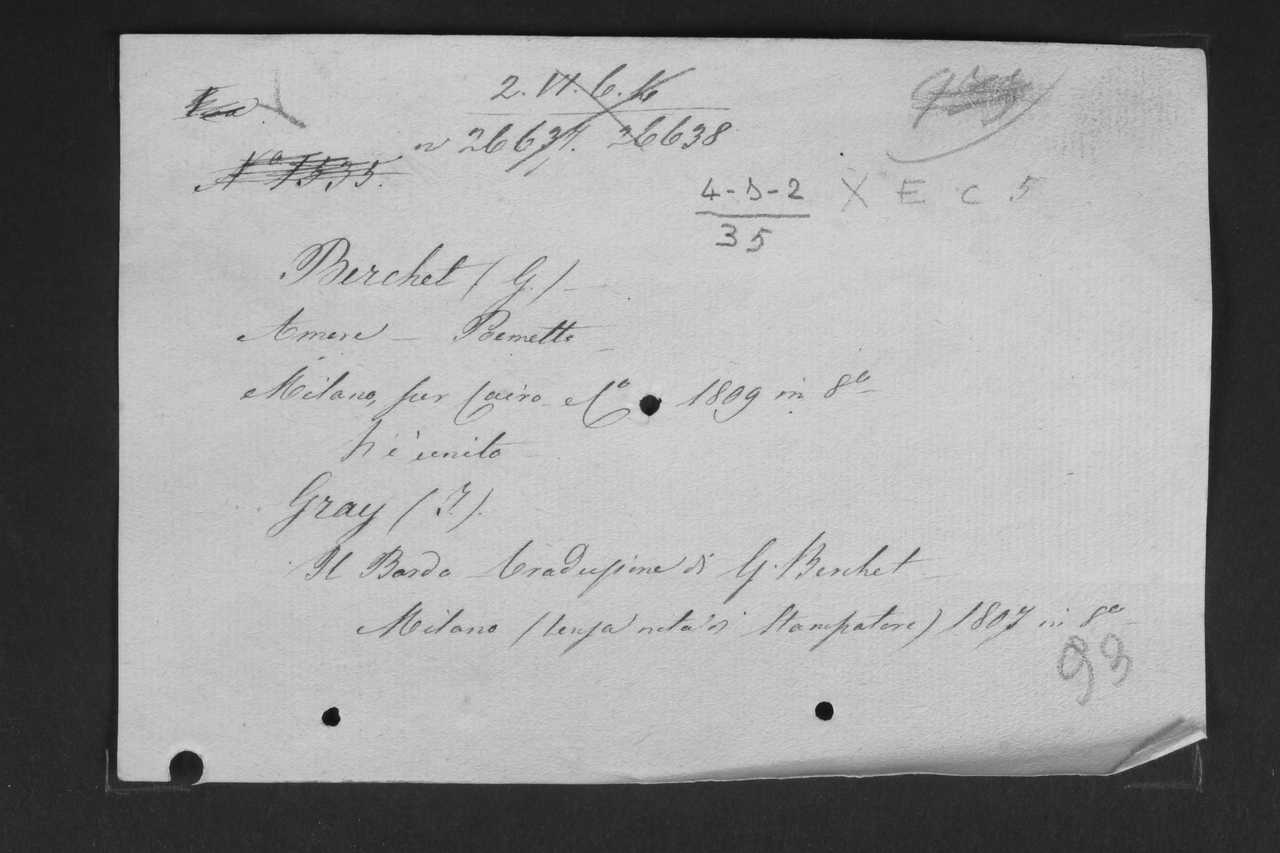 2. VI. 6. K
n 26637. 26638
No 1535.
4-D-2 X E C. 5
35
Berchet (G.)
Amore — Poemetto
Milano, per Cairo e Co 1809 in 8o
V'è unito
Gray (T.)
Il Bardo traduzione di G. Berchet
Milano (senza nota di Stampatore) 1807 in 8o
93